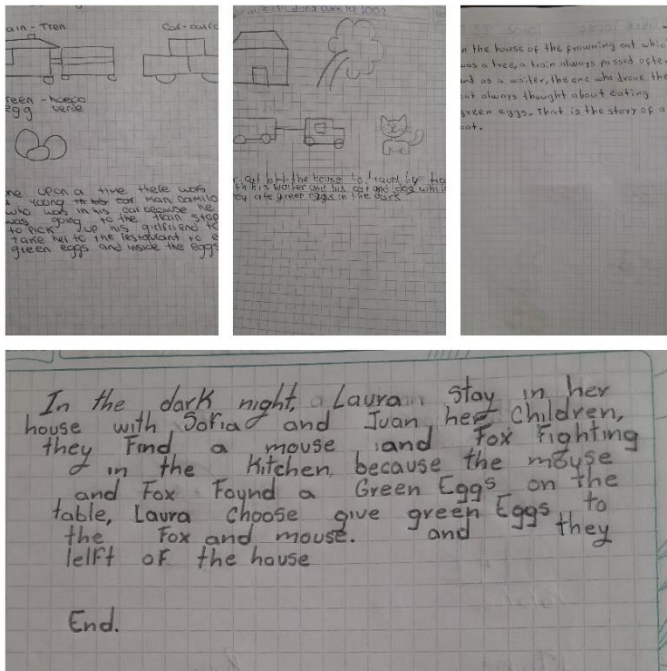 Tren
reen - huevo
egg verde
upon a time there was
who was in his car because he
was going to the train stop
to pick up his girlfriend to
take her to the restaurant to
green eggs and inside the eggs
with his waiter and his cat and dog
they ate green eggs in the dark
n the house of the frowning cat
was a tree, a train always passed
and as a waiter, the one who drove the
always thought about eating
green eggs. That is the story of a
cat.
In the dark night, Laura stay in her
house with Sofia and Juan her children,
they Find a mouse and Fox Fighting
in the Kitchen because the mouse
and Fox Found a Green Eggs on the
table, Laura choose give green Eggs to
the Fox and mouse. and they
lelft of the house
End.